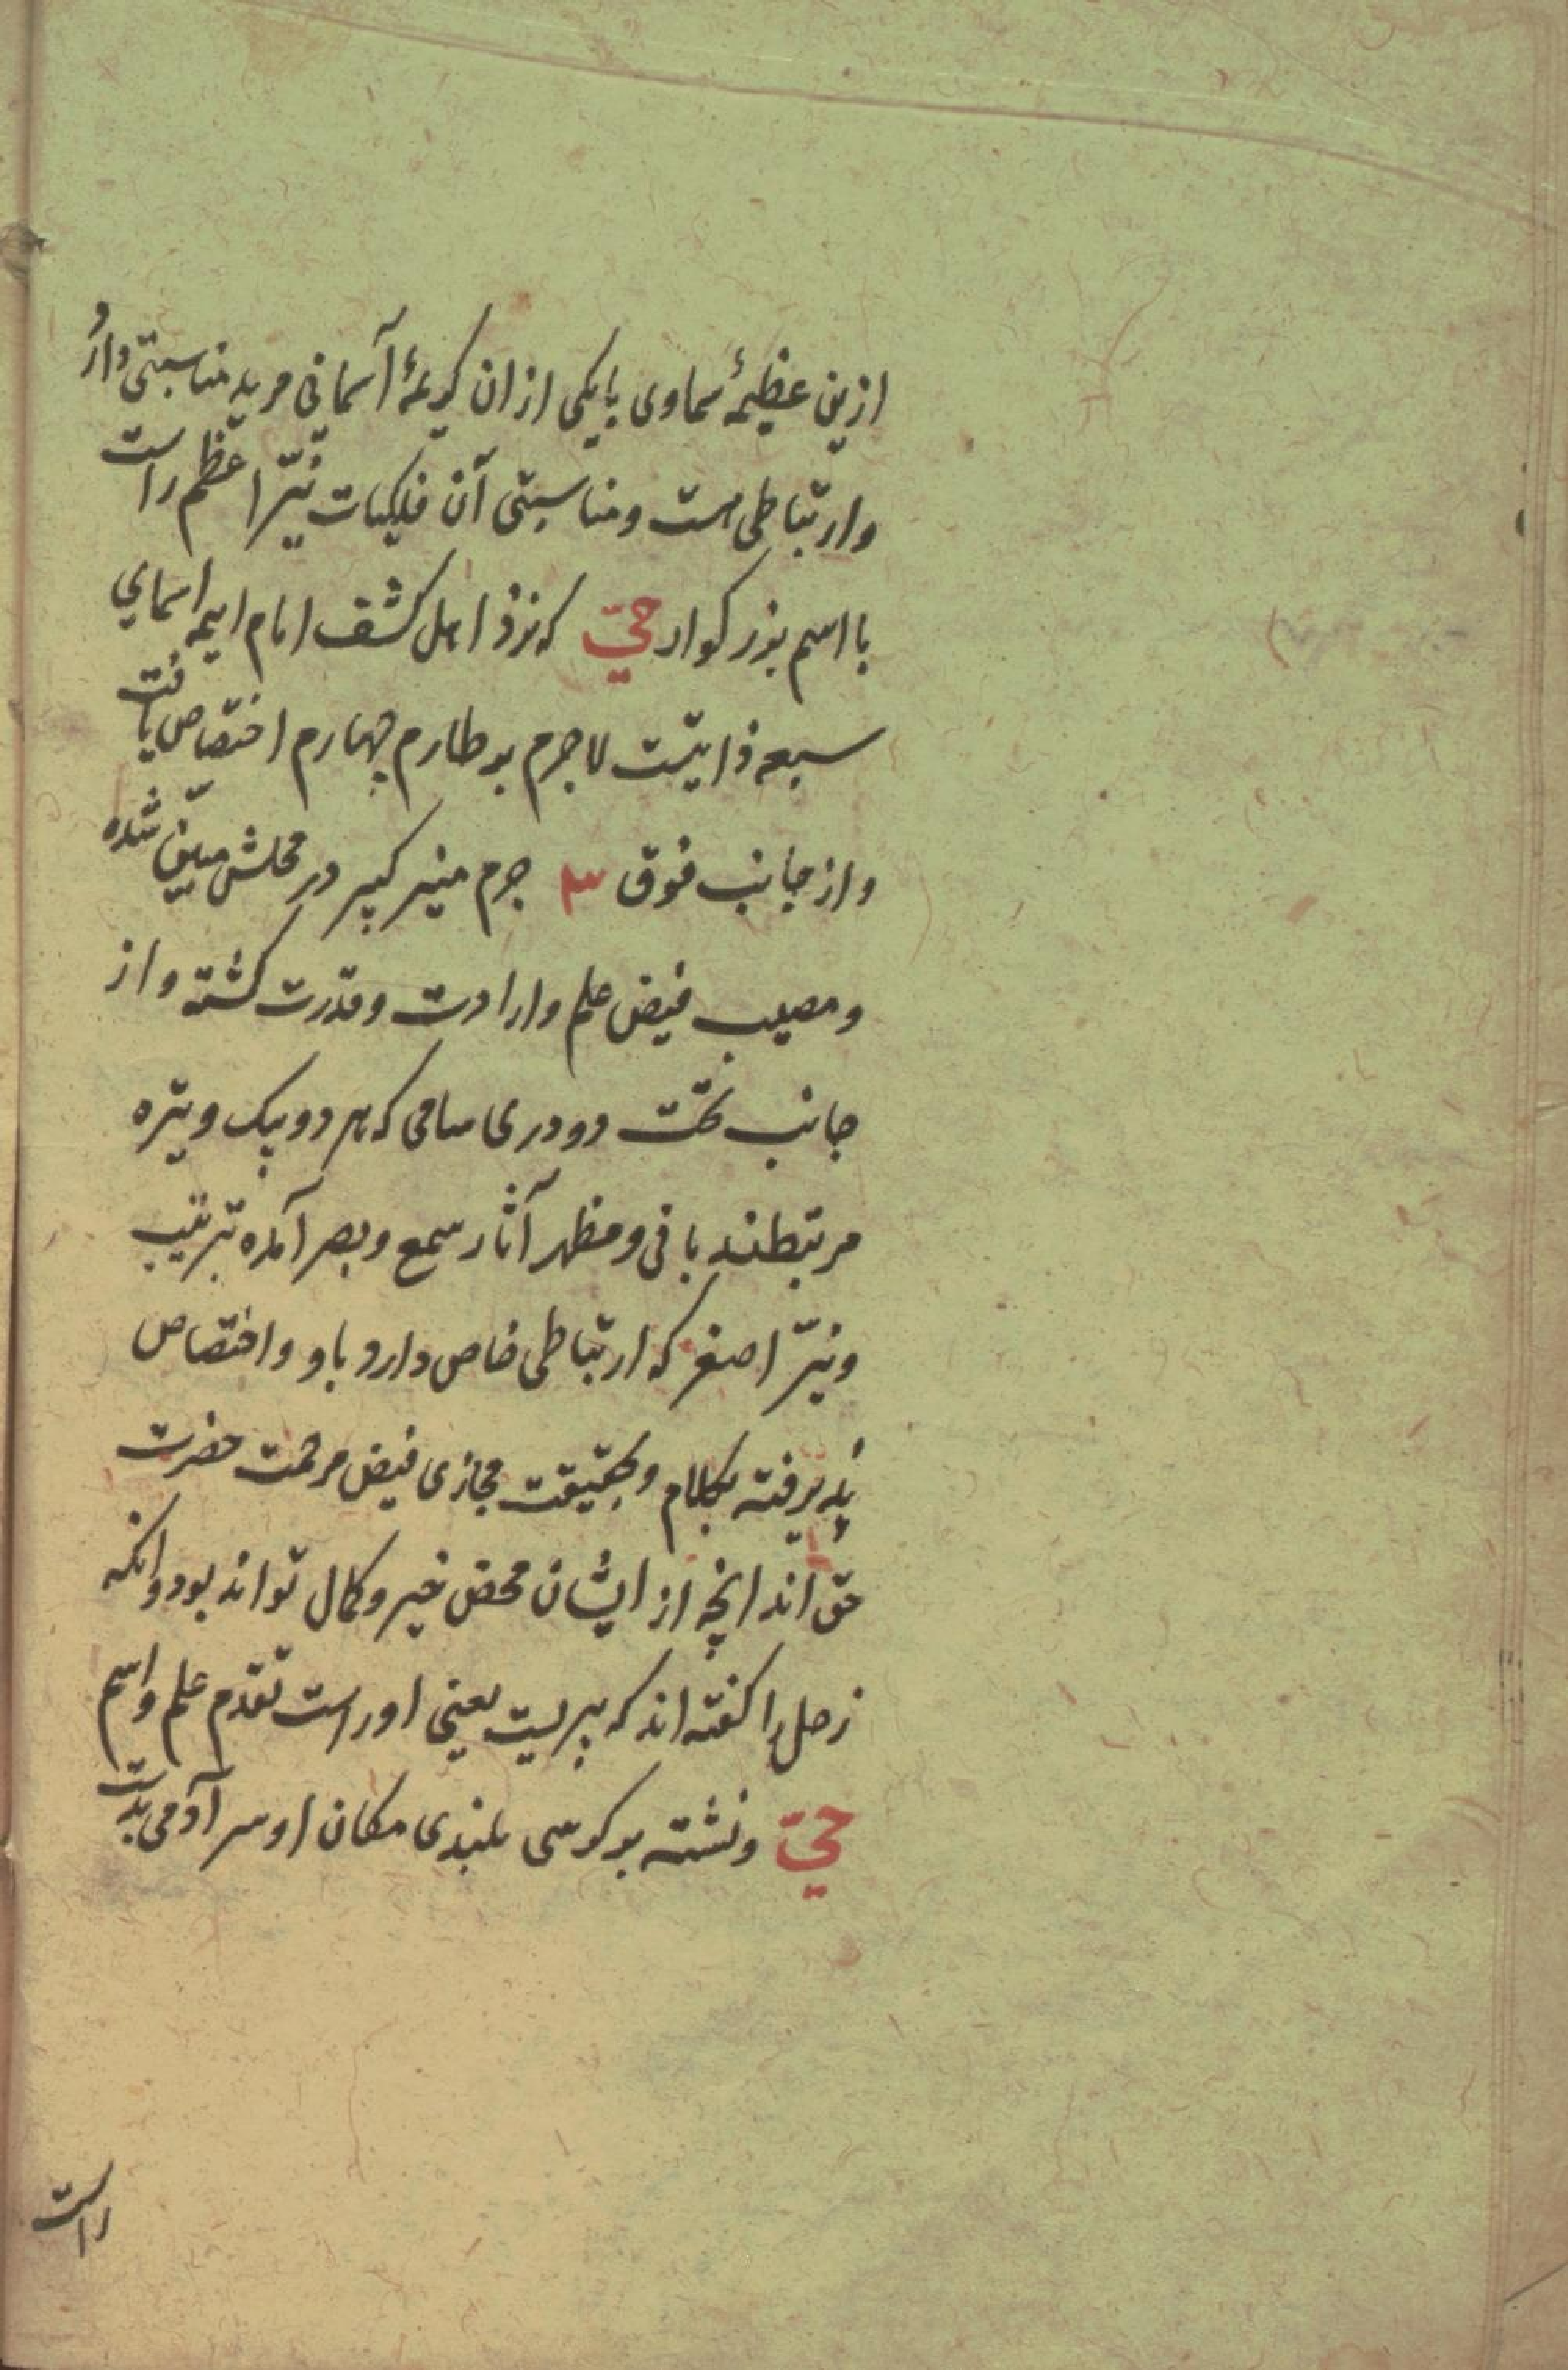 ازین عظیمهٔ سماوی بایکی ازان کریمهٔ آسمانی مرید مناسبتی دارد
وارتباطی هست ومناسبتی آن فلکیات نیّر اعظم راست
با اسم بزرکوار حيّ که نزد اهل کشف امام ایمه اسمای
سبعه ذاتیّت لاجرم بر طارم چهارم اختصاص یافت
واز جانب فوق ۳ جرم منیر کبیر در محلش مبیّن شده
ومصیب فیض علم وارادت وقدرت کشته واز
جانب تحت دو دری سامی که هر دو بیک وتیره
مرتبطند بافی ومظهر آثار سمع وبصر آمده بترتیب
ونیّر اصغر که ارتباطی خاص دارد باو واختصاص
پذیرفته بکلام وبحقیقت مجازی فیض مرحمت حضرت
حق اند انچه از ایشان محض خیر وکمال تواند بود وانکه
زحل را کفته اند که پیریست یعنی اوراست تقدم علم واسم
حيّ ونشسته بر کرسی بلندی مکان او سر آدمی بدست
راست